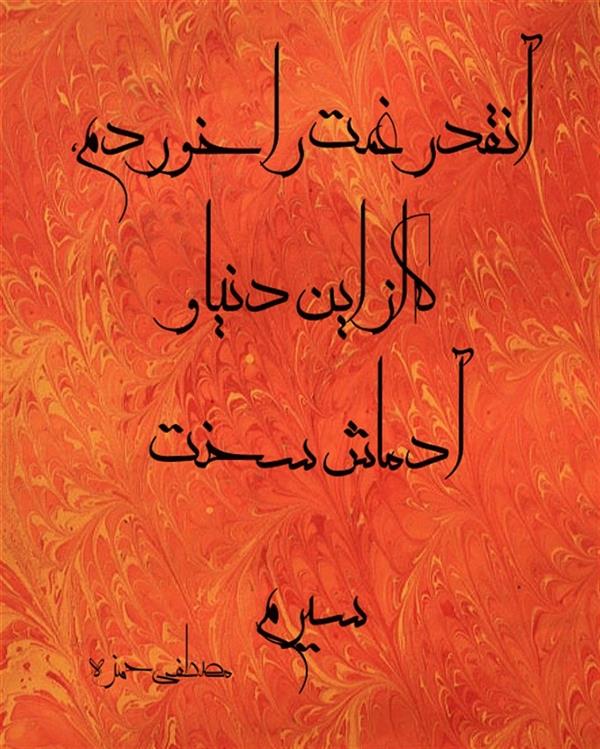 آنقدر غمت را خوردم،
که از این دنیا و
آدماش سخت
سیرم
مصطفی حمزه